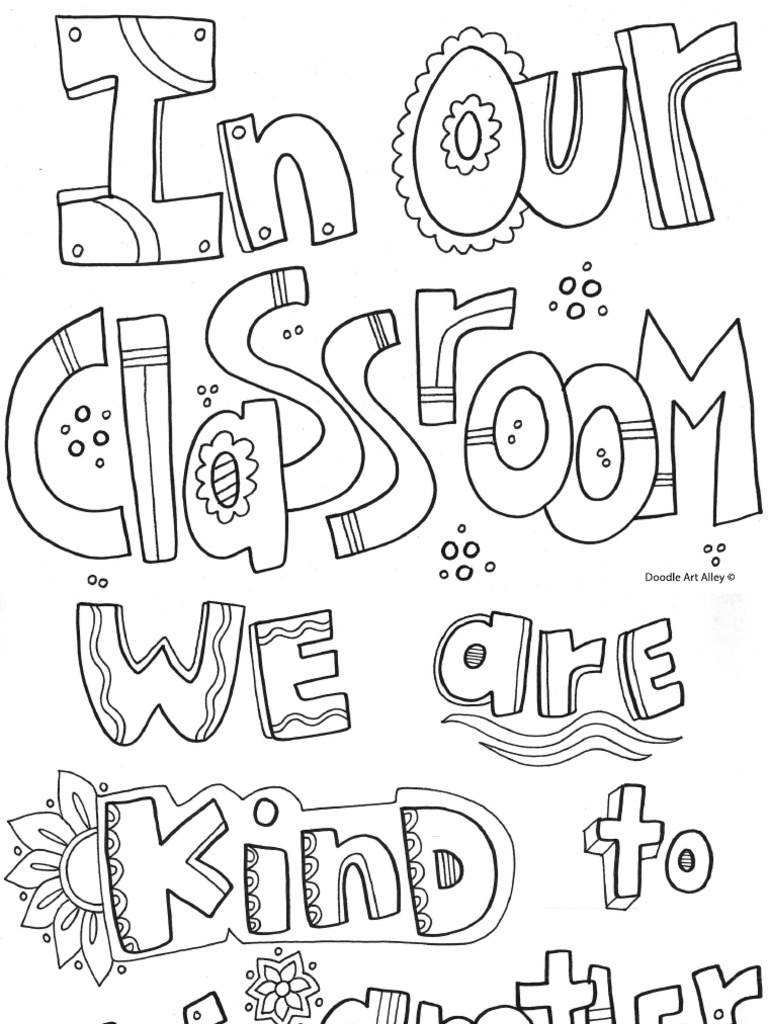 In Our
Classroom
Doodle Art Alley ©
We are
Kind to